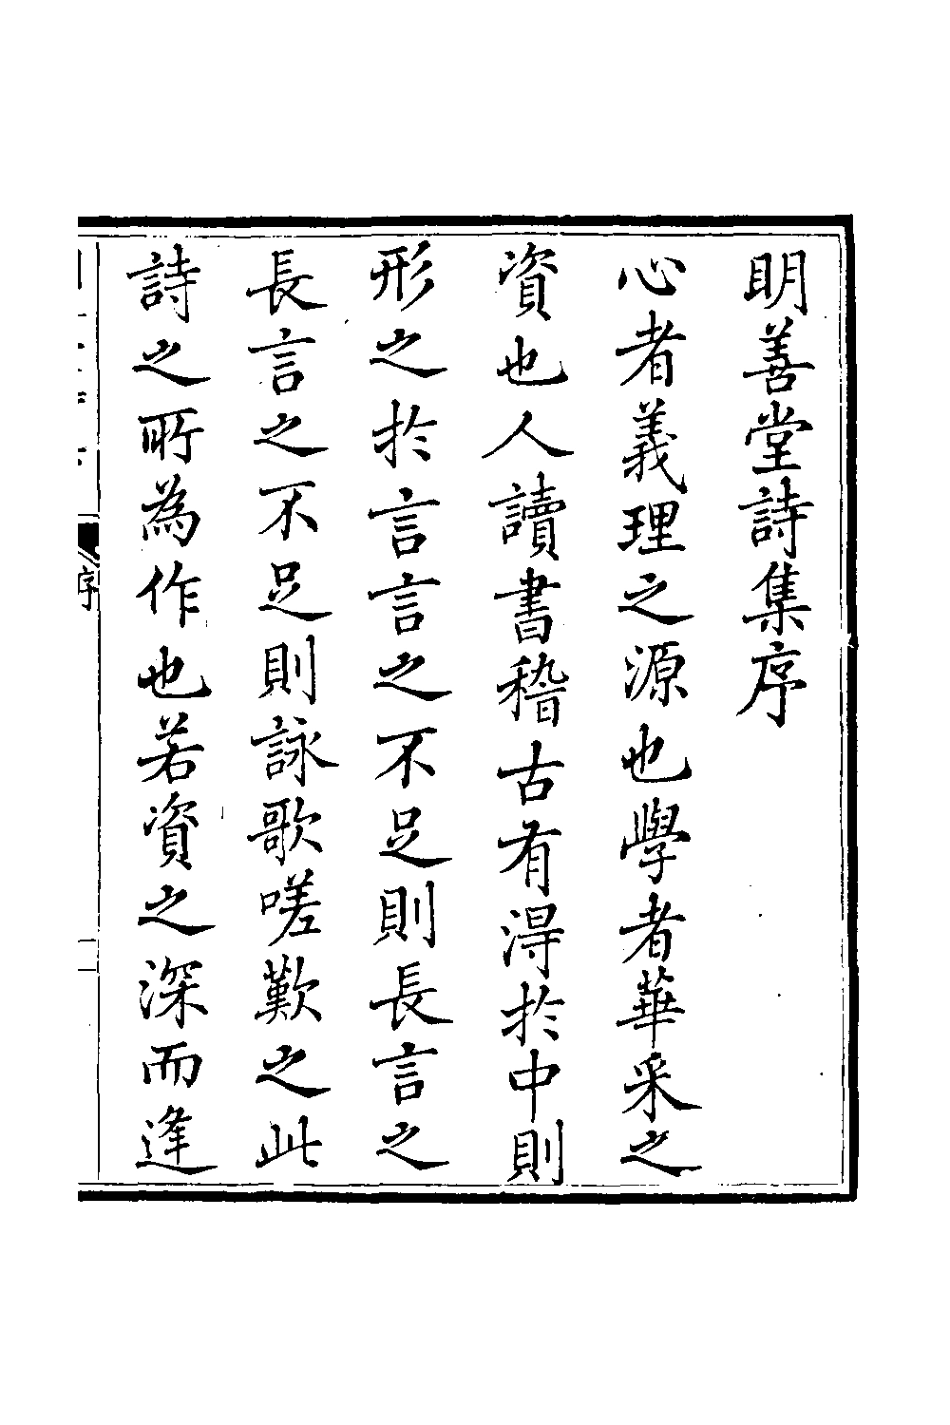 明善堂詩集序
心者義理之源也學者華采之
資也人讀書稽古有得於中則
形之於言言之不足則長言之
長言之不足則詠歌嗟歎之此
詩之所為作也若資之深而逢
序
一